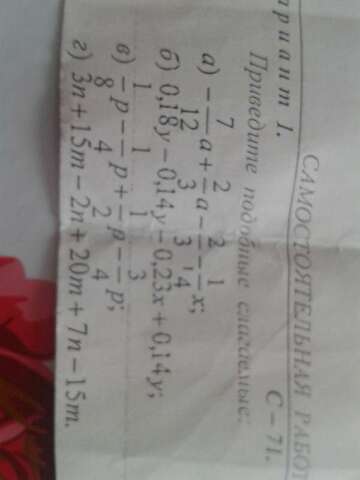 САМОСТОЯТЕЛЬНАЯ РАБОТ
С – 71.
риант 1.
Приведите подобные слагаемые:
а) −7/12 a + 2/3 a − 2/3 − 1/4 x;
б) 0,18y − 0,14y − 0,23x + 0,14y;
в) −1/8 p − 1/4 p + 1/2 p − 3/4 p;
г) 3n + 15m − 2n + 20m + 7n − 15m.